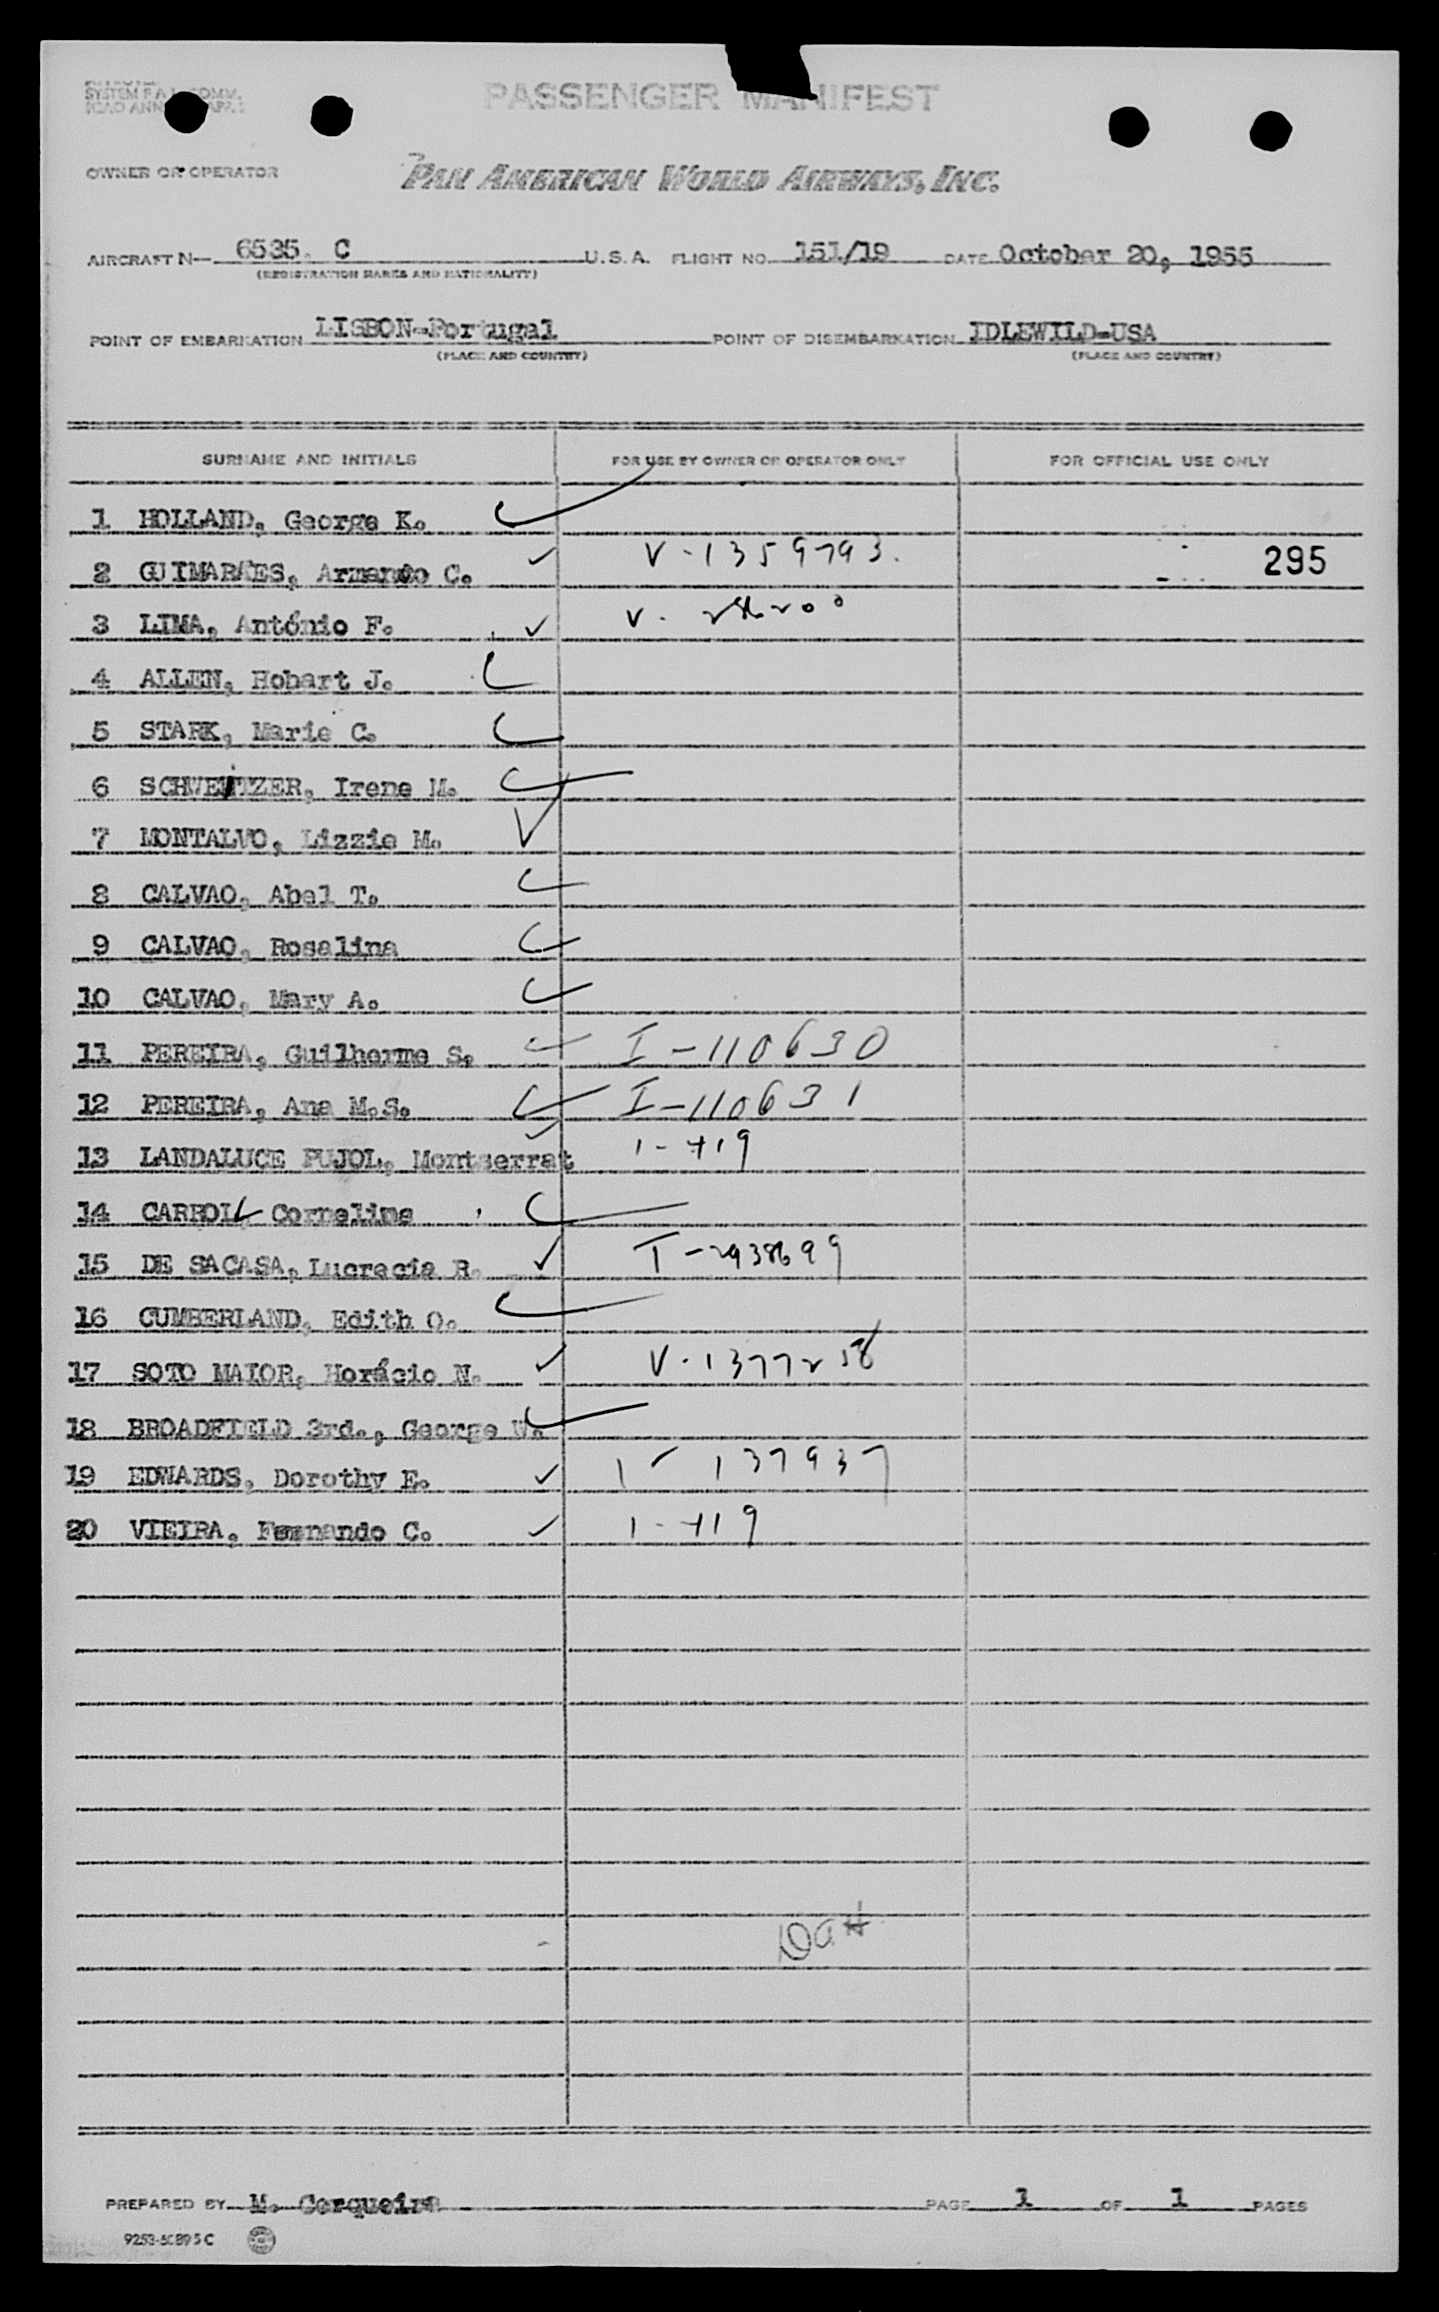 PASSENGER MANIFEST
OWNER OR OPERATOR PAN AMERICAN WORLD AIRWAYS, INC.
AIRCRAFT N— 6535. C U.S.A. FLIGHT NO. 151/19 DATE October 20, 1955
(REGISTRATION MARKS AND NATIONALITY)
POINT OF EMBARKATION LISBON-Portugal POINT OF DISEMBARKATION IDLEWILD-USA
(PLACE AND COUNTRY) (PLACE AND COUNTRY)
SURNAME AND INITIALS FOR USE BY OWNER OR OPERATOR ONLY FOR OFFICIAL USE ONLY
1 HOLLAND, George K.
2 GUIMARAES, Armando C. V-1359793. 295
3 LIMA, António F. V.
4 ALLEN, Hobart J.
5 STARK, Marie C.
6 SCHWEITZER, Irene M.
7 MONTALVO, Lizzie M.
8 CALVAO, Abel T.
9 CALVAO, Rosalina
10 CALVAO, Mary A.
11 PEREIRA, Guilherme S. I-110630
12 PEREIRA, Ana M.S. I-110631
13 LANDALUCE PUJOL, Montserrat 1-419
14 CARROLL Corneline
15 DE SACASA, Lucrecia R.
16 CUMBERLAND, Edith O.
17 SOTO MAIOR, Horácio N. V-1377258
18 BROADFIELD 3rd., George W.
19 EDWARDS, Dorothy E. 137937
20 VIEIRA, Fernando C. 1-419
PREPARED BY M. Cerqueira PAGE 1 OF 1 PAGES